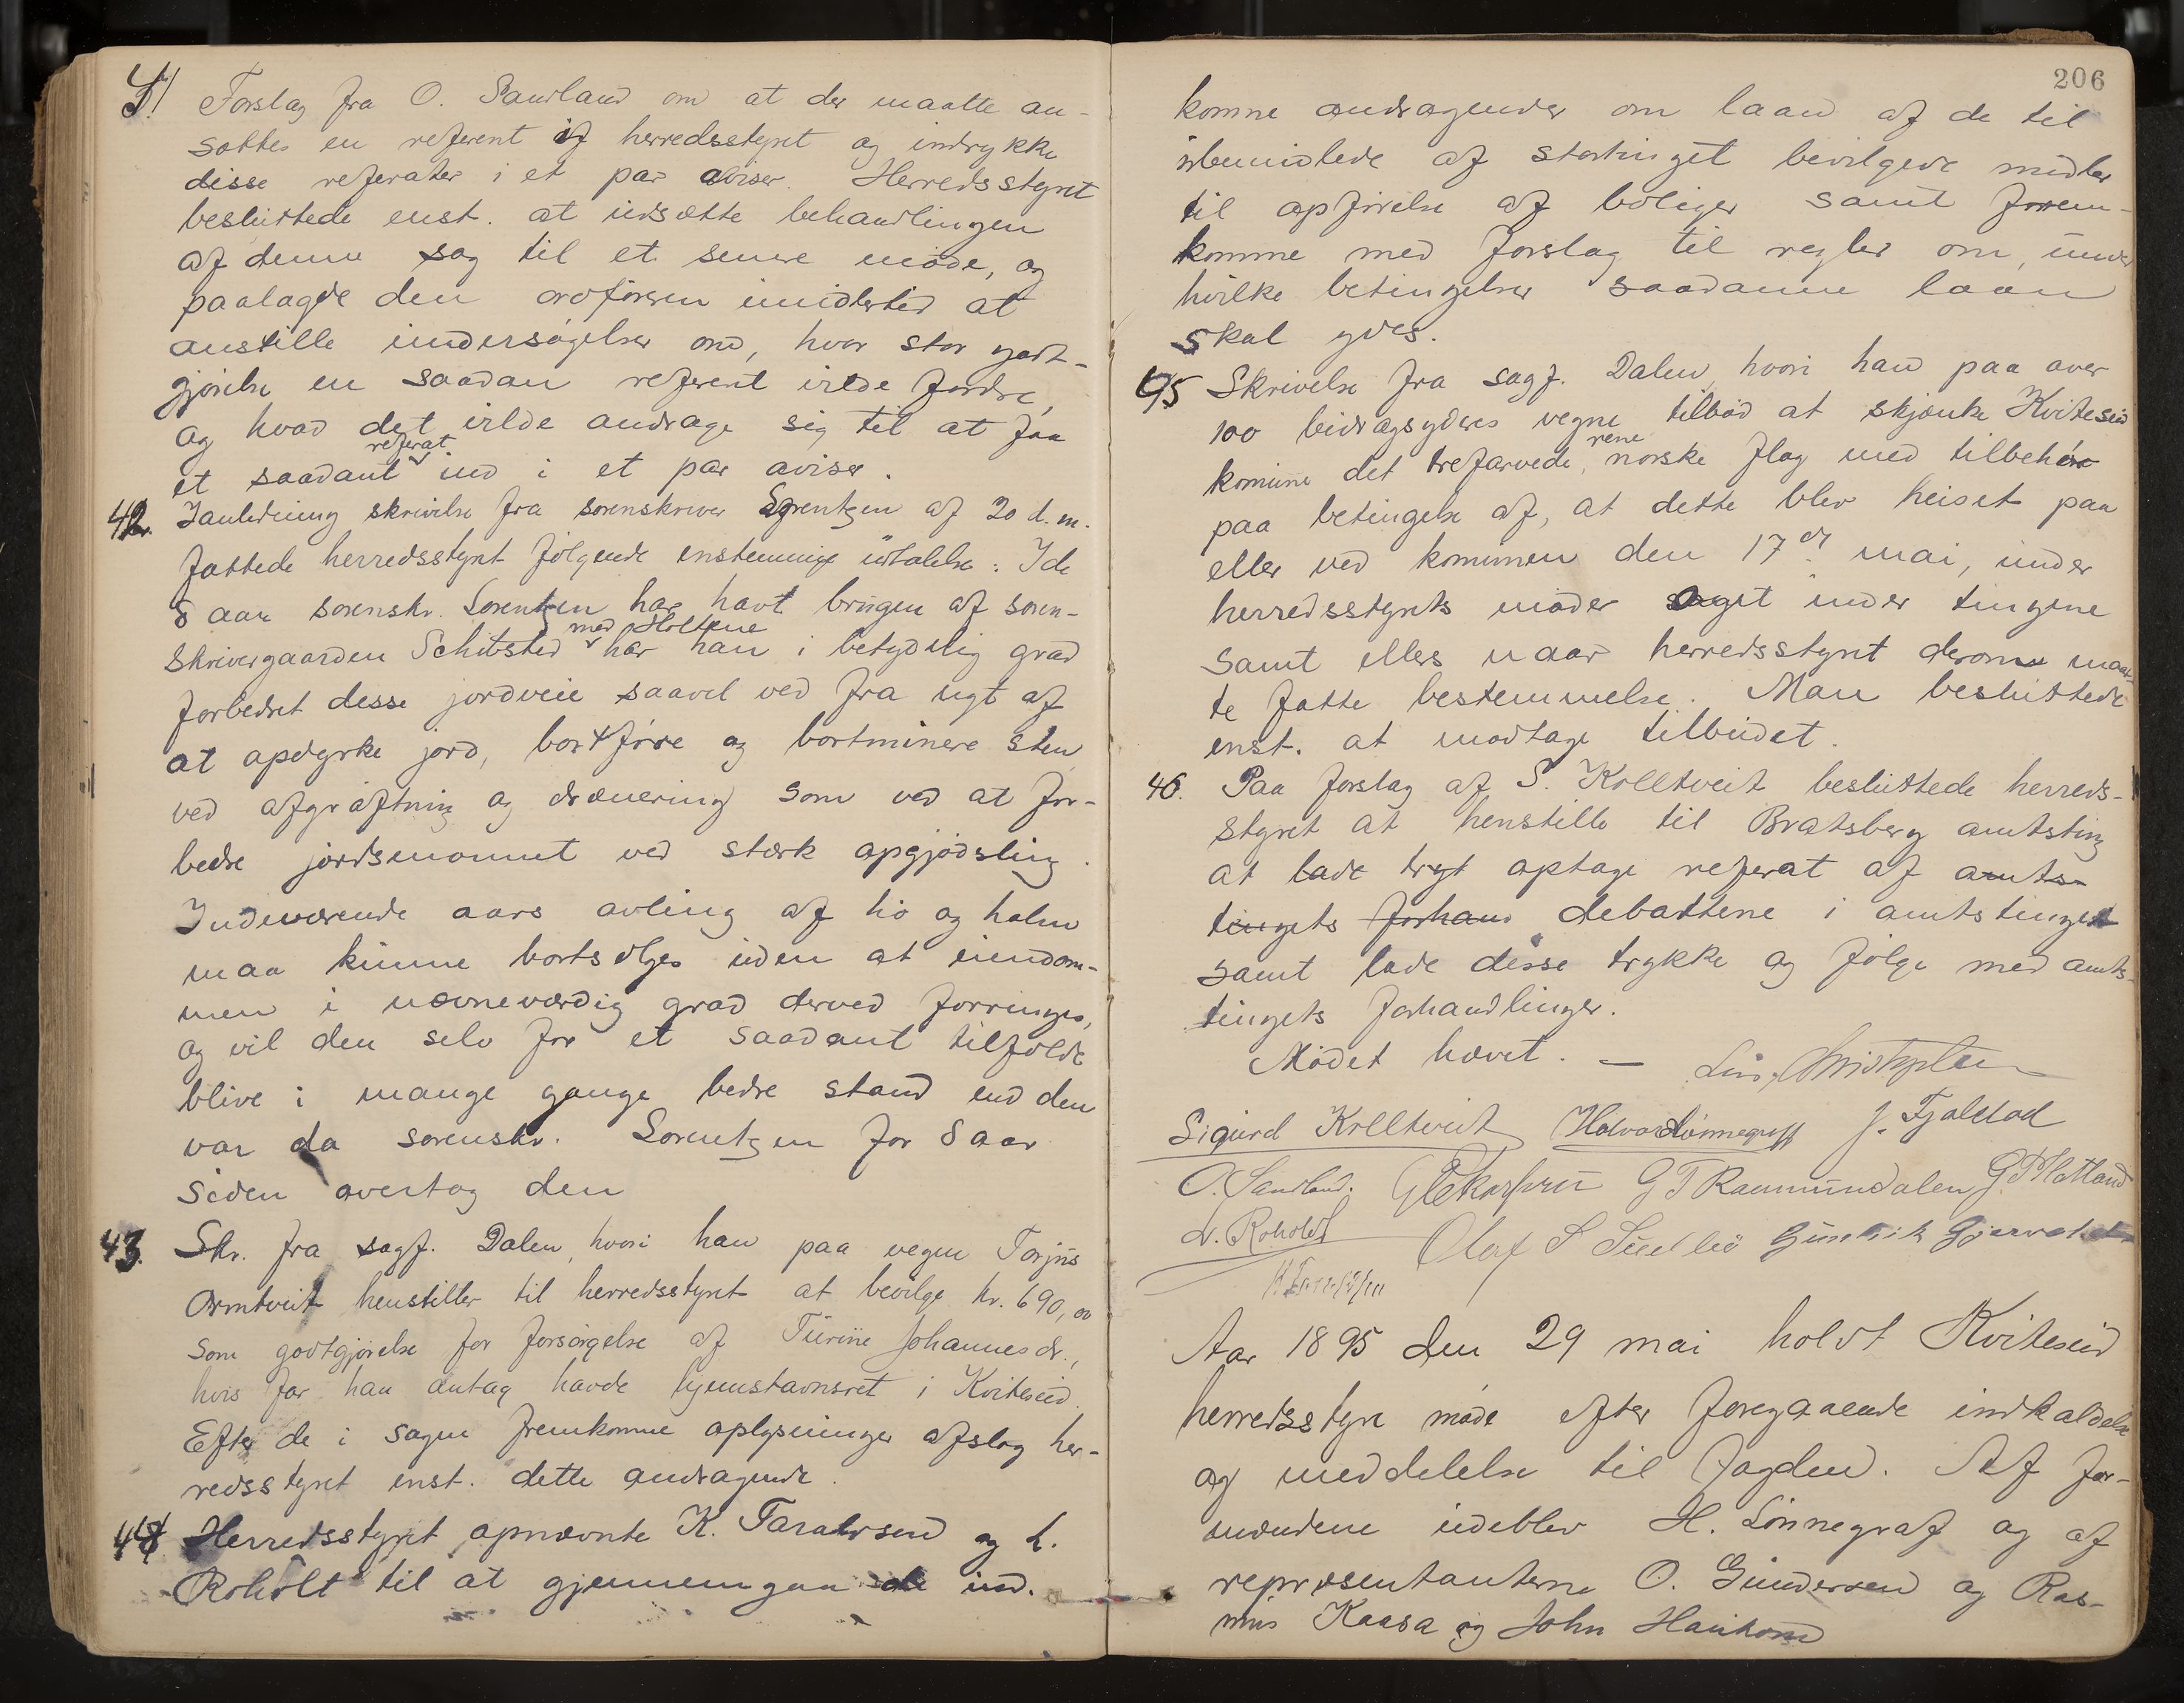 41 Forslag fra O. Sandland om at der maatte an-
sættes en referent i herredsstyret og indrykke
disse referater i et par aviser. Herredsstyret
besluttede enst. at udsætte behandlingen
af denne sag til et senere møde, og
paalagde den ordføreren imidlertid at
anstille undersøgelser om, hvor stor godt-
gjørelse en saadan referent vilde fordre,
og hvad det vilde andrage sig til at faa
referat
et saadant ind i et par aviser.
42. I anledning skrivelse fra sorenskriver Lorentzen af 20 d.m.
fattede herredsstyret følgende enstemmige udtalelse: I de
8 aar sorenskr. Lorentzen har havt brugen af soren-
med Holtene
skrivergaarden Schibsted har han i betydelig grad
forbedret desse jordveie saavel ved fra nyt af
at opdyrke jord, bortføre og bortminere sten
ved afgrøftning og drænering som ved at for-
bedre jordsmonnet ved stærk opgjødsling.
Indeværende aars avling af hø og halm
maa kunne bortsælges uden at eiendom-
men i nævneværdig grad derved forringes,
og vil den selv for et saadant tilfælde
blive i mange gange bedre stand end den
var da sorenskr. Lorentzen for 8 aar
siden overtog den
43. Skr. fra sagf. Dalen, hvori han paa vegne Torjus
Ormtveit henstiller til herredsstyret at bevilge kr. 690,00
som godtgjørelse for forsørgelse af Turine Johannesdr.,
hvis far han antag havde hjemstavnsret i Kviteseid.
Efter de i sagen fremkomne oplysninger afslog her-
redsstyret enst. dette andragende.
44 Herredsstyret opnævnte K. Taraldsen og L.
Roholt til at gjennemgaa de ind.
206
komne andragender om laan af de til
ubemidlede af stortinget bevilgede midler
til opførelse af boliger samt frem-
komme med forslag til regler om, under
hvilke betingelser saadanne laan
skal ydes.
45 Skrivelse fra sagf. Dalen, hvori han paa over
100 bidragsyderes vegne tilbød at skjænke Kviteseid
rene
komune det trefarvede, norske flag med tilbehør
paa betingelse af, at dette blev heiset paa
eller ved komunen den 17de mai, under
herredsstyrets møder og under tingene
samt ellers naar herredsstyret derom maat-
te fatte bestemmelse. Man besluttede
enst. at modtage tilbudet.
46. Paa forslag af S. Kolltveit besluttede herreds-
styret at henstille til Bratsberg amtsting
at lade trygt optage referat af amts-
tingets forhand debattene i amtstinget
samt lade disse trykke og følge med amts-
tingets forhandlinger.
Mødet hævet. —
Sigurd Kolltveit Halvor Lønnegraff J. Fjalestad
O. Sandland. G T Raumundalen G. P. Flatland
L. Roholdt Olav S Sudbø Gunleik Gjervoldstad
Aar 1895 den 29 mai holdt Kviteseid
herredsstyre møde efter foregaaende indkaldelse
og meddelelse til fogden. Af for-
mændene udeblev H. Lønnegraf og af
repræsentanterne O. Gunderson og Ras-
mus Kaasa og John Haukom